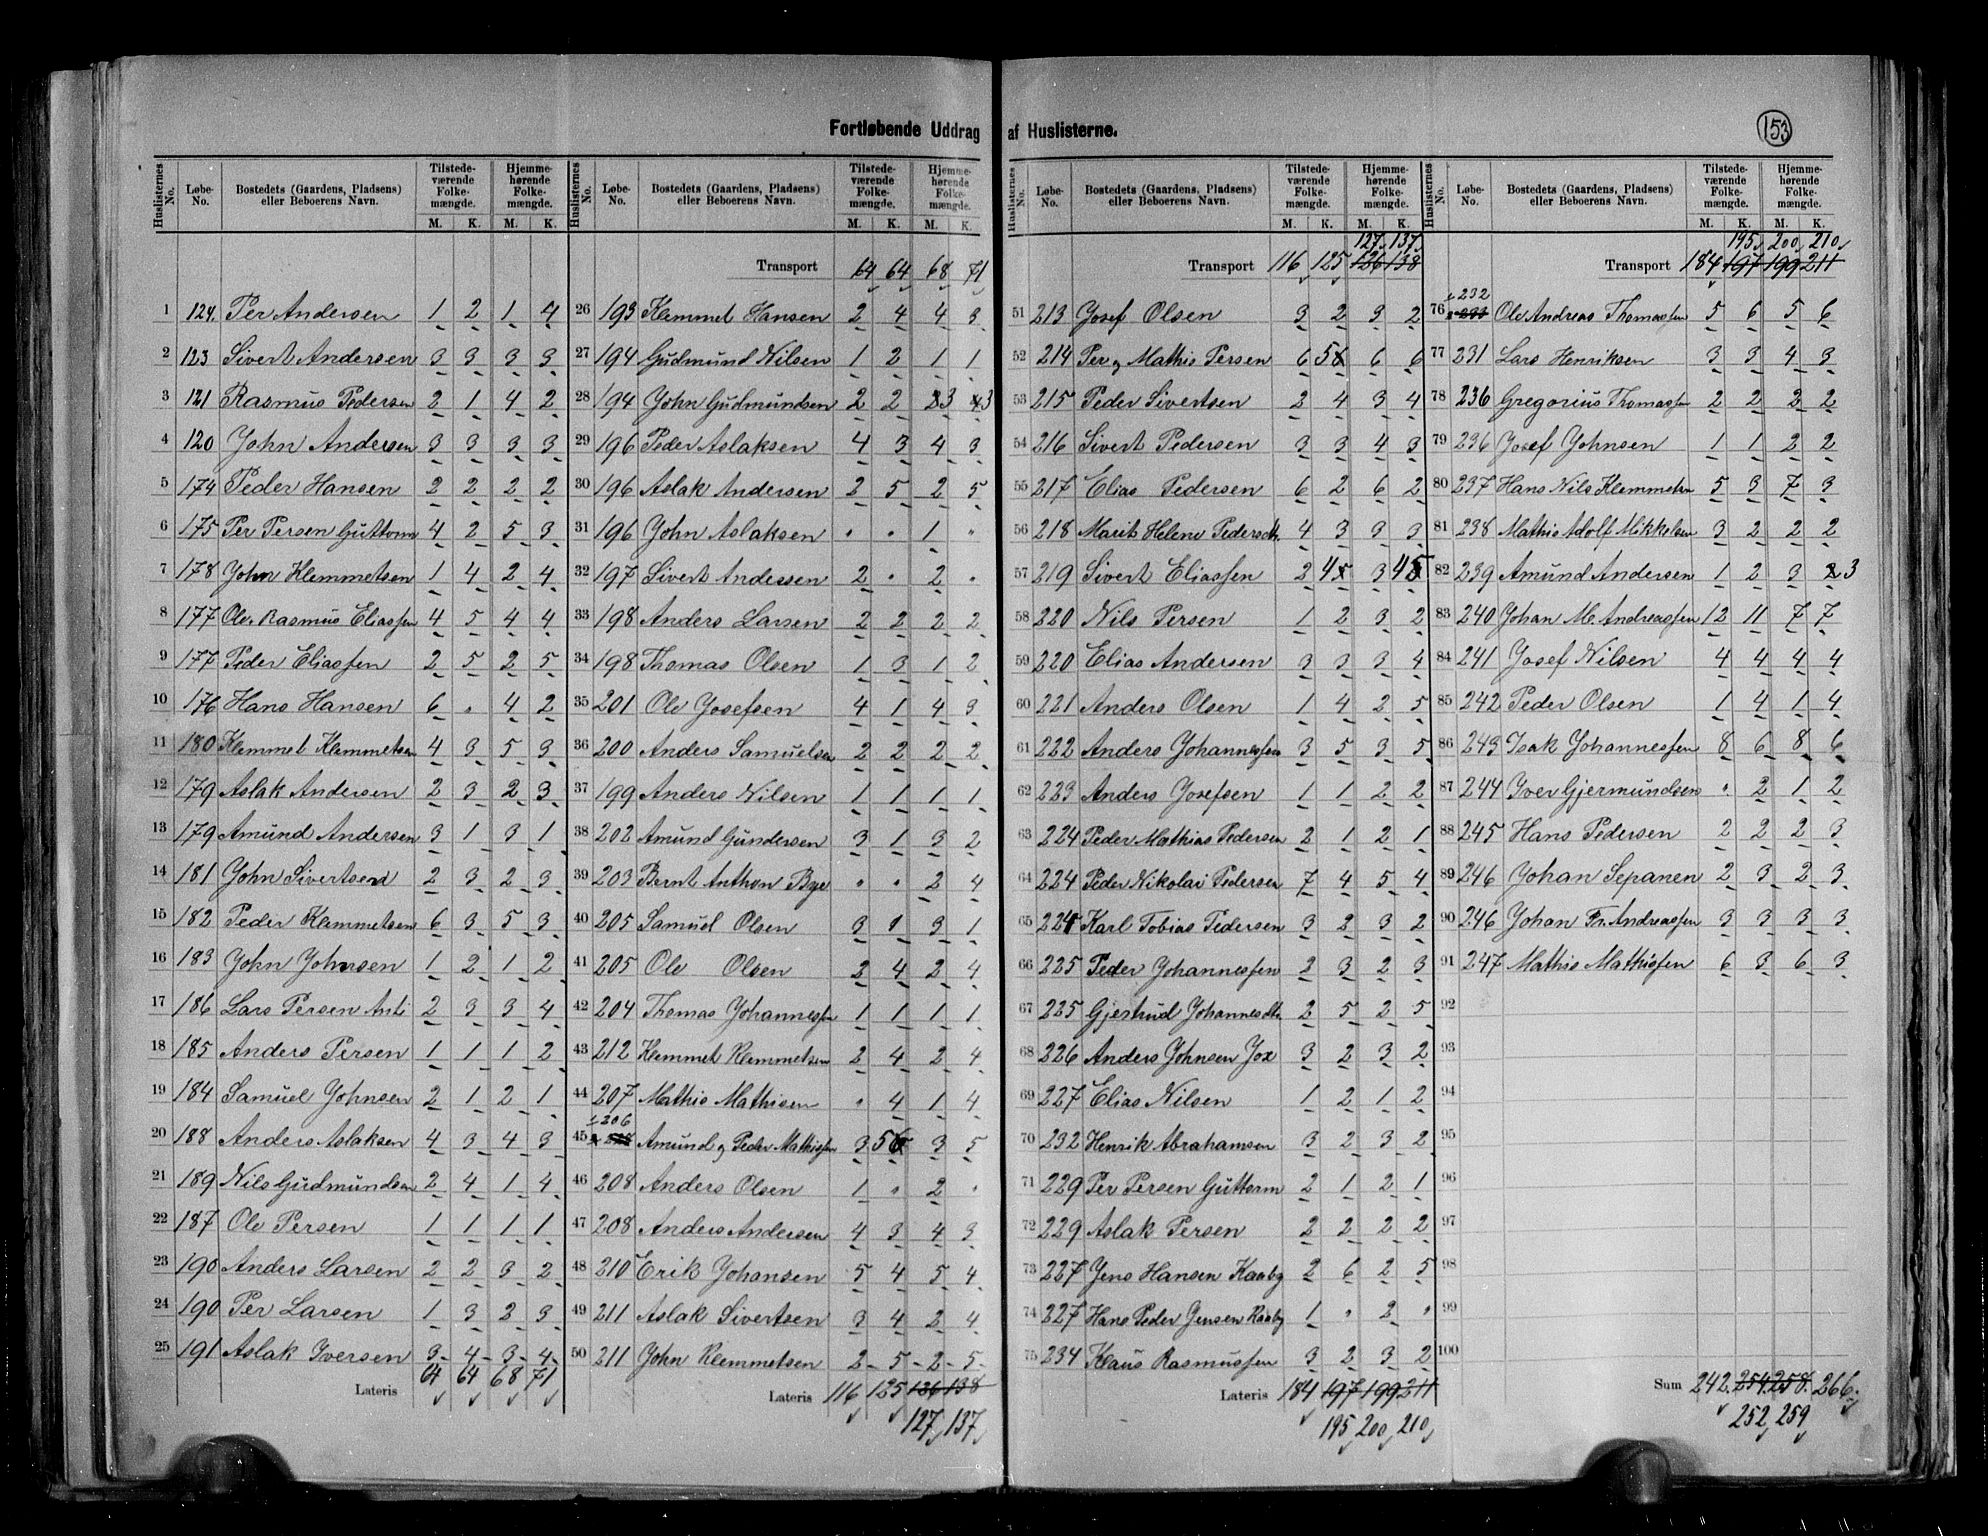 Fortløbende Uddrag af Huslisterne.
153
Huslisternes No. Løbe-No. Bostedets (Gaardens, Pladsens) eller Beboerens Navn. Tilstedeværende Folkemængde. M. K. Hjemmehørende Folkemængde. M. K.
1 124. Per Andersen 1 2 1 4
2 123 Sivert Andersen 3 3 3 3
3 121 Rasmus Pedersen 2 1 4 2
4 120 John Andersen 3 3 3 3
5 174 Peder Hansen 2 2 2 2
6 175 Per Persen Guttorm 4 2 5 3
7 178 John Klemmetsen 1 4 2 4
8 177 Ole Rasmus Eliassen 4 5 4 4
9 177 Peder Eliassen 2 5 2 5
10 176 Hans Hansen 6 " 4 2
11 180 Klemmet Klemmetsen 4 3 5 3
12 179 Aslak Andersen 2 3 2 3
13 179 Amund Andersen 3 1 3 1
14 181 John Sivertsen 2 3 2 3
15 182 Peder Klemmetsen 6 3 5 3
16 183 John Johnsen 1 2 1 2
17 186 Lars Persen Anti 2 3 3 4
18 185 Anders Persen 1 1 1 2
19 184 Samuel Johnsen 2 1 2 1
20 188 Anders Aslaksen 4 3 4 3
21 189 Nils Gudmundsen 2 4 1 4
22 187 Ole Persen 1 1 1 1
23 190 Anders Larsen 2 2 3 2
24 190 Per Larsen 1 3 2 3
25 191 Aslak Iversen 3 4 3 4
Lateris 64 64 68 71
Huslisternes No. Løbe-No. Bostedets (Gaardens, Pladsens) eller Beboerens Navn. Tilstedeværende Folkemængde. M. K. Hjemmehørende Folkemængde. M. K.
Transport 64 64 68 71
26 193 Klemmet Hansen 2 4 4 3
27 194 Gudmund Nilsen 1 2 1 1
28 194 John Gudmundsen 2 2 3 3
29 196 Peder Aslaksen 4 3 4 3
30 196 Aslak Andersen 2 5 2 5
31 196 John Aslaksen " " 1 "
32 197 Sivert Andersen 2 " 2 "
33 198 Anders Larsen 2 2 2 2
34 198 Thomas Olsen 1 3 1 2
35 201 Ole Josefsen 4 1 4 3
36 200 Anders Samuelsen 2 2 2 2
37 199 Anders Nilsen 1 1 1 1
38 202 Amund Gundersen 3 1 3 2
39 203 Bernt Anthon Bye " " 2 4
40 205 Samuel Olsen 3 1 3 1
41 205 Ole Olsen 2 4 2 4
42 204 Thomas Johannessen 1 1 1 1
43 212 Klemmet Klemmetsen 2 4 2 4
44 207 Mathis Mathisen " 4 1 4
45 206 Amund og Peder Mathissen 3 5 3 5
46 208 Anders Olsen 1 " 2 "
47 208 Anders Andersen 4 3 4 3
48 210 Erik Johansen 5 4 5 4
49 211 Aslak Sivertsen 3 4 2 4
50 211 John Klemmetsen 2 5 2 5
Lateris 116 125 136 138
127 137
Huslisternes No. Løbe-No. Bostedets (Gaardens, Pladsens) eller Beboerens Navn. Tilstedeværende Folkemængde. M. K. Hjemmehørende Folkemængde. M. K.
127 137
Transport 116 125 126 138
51 213 Josef Olsen 3 2 3 2
52 214 Per og Mathis Persen 6 5 6 6
53 215 Peder Sivertsen 2 4 3 4
54 216 Sivert Pedersen 3 3 4 3
55 217 Elias Pedersen 6 2 6 2
56 218 Marit Helene Pedersdtr. 4 3 3 3
57 219 Sivert Eliassen 2 4 3 4
58 220 Nils Persen 1 2 3 2
59 220 Elias Andersen 3 3 3 4
60 221 Anders Olsen 1 4 2 5
61 222 Anders Johannessen 3 5 3 5
62 223 Anders Josefsen 1 1 2 2
63 224 Peder Mathias Pedersen 2 1 2 1
64 224 Peder Nikolai Pedersen 7 4 5 4
65 224 Karl Tobias Pedersen 3 2 3 2
66 225 Peder Johannessen 2 3 2 3
67 225 Gjertrud Johannesdtr. 2 5 2 5
68 226 Anders Johnsen Jox 3 2 3 2
69 227 Elias Nilsen 1 2 1 2
70 232 Henrik Abrahamsen 3 2 3 2
71 229 Per Persen Guttorm 2 1 2 1
72 229 Aslak Persen 2 2 2 2
73 227 Jens Hansen Kaaby 2 6 2 5
74 227 Hans Peder Jensen Kaaby 1 " 2 "
75 234 Klaus Rasmussen 3 2 3 2
Lateris 184 197 199 211
195 200 210
Huslisternes No. Løbe-No. Bostedets (Gaardens, Pladsens) eller Beboerens Navn. Tilstedeværende Folkemængde. M. K. Hjemmehørende Folkemængde. M. K.
195 200 210
Transport 184 197 199 211
76 232 Ole Andreas Thomassen 5 6 5 6
77 231 Lars Henriksen 3 3 4 3
78 236 Gregorius Thomassen 2 2 2 2
79 236 Josef Johnsen 1 1 2 2
80 237 Hans Nils Klemmetsen 5 3 7 3
81 238 Mathis Adolf Mikkelsen 3 2 2 2
82 239 Amund Andersen 1 2 3 3
83 240 Johan M. Andreassen 12 11 7 7
84 241 Josef Nilsen 4 4 4 4
85 242 Peder Olsen 1 4 1 4
86 243 Isak Johannessen 8 6 8 6
87 244 Iver Gjermundsen " 2 1 2
88 245 Hans Pedersen 2 2 2 3
89 246 Johan Sepanen 2 3 2 3
90 246 Johan Fr. Andreassen 3 3 3 3
91 247 Mathis Mathissen 6 3 6 3
92
93
94
95
96
97
98
99
100
Sum 242 254 258 266
252 259